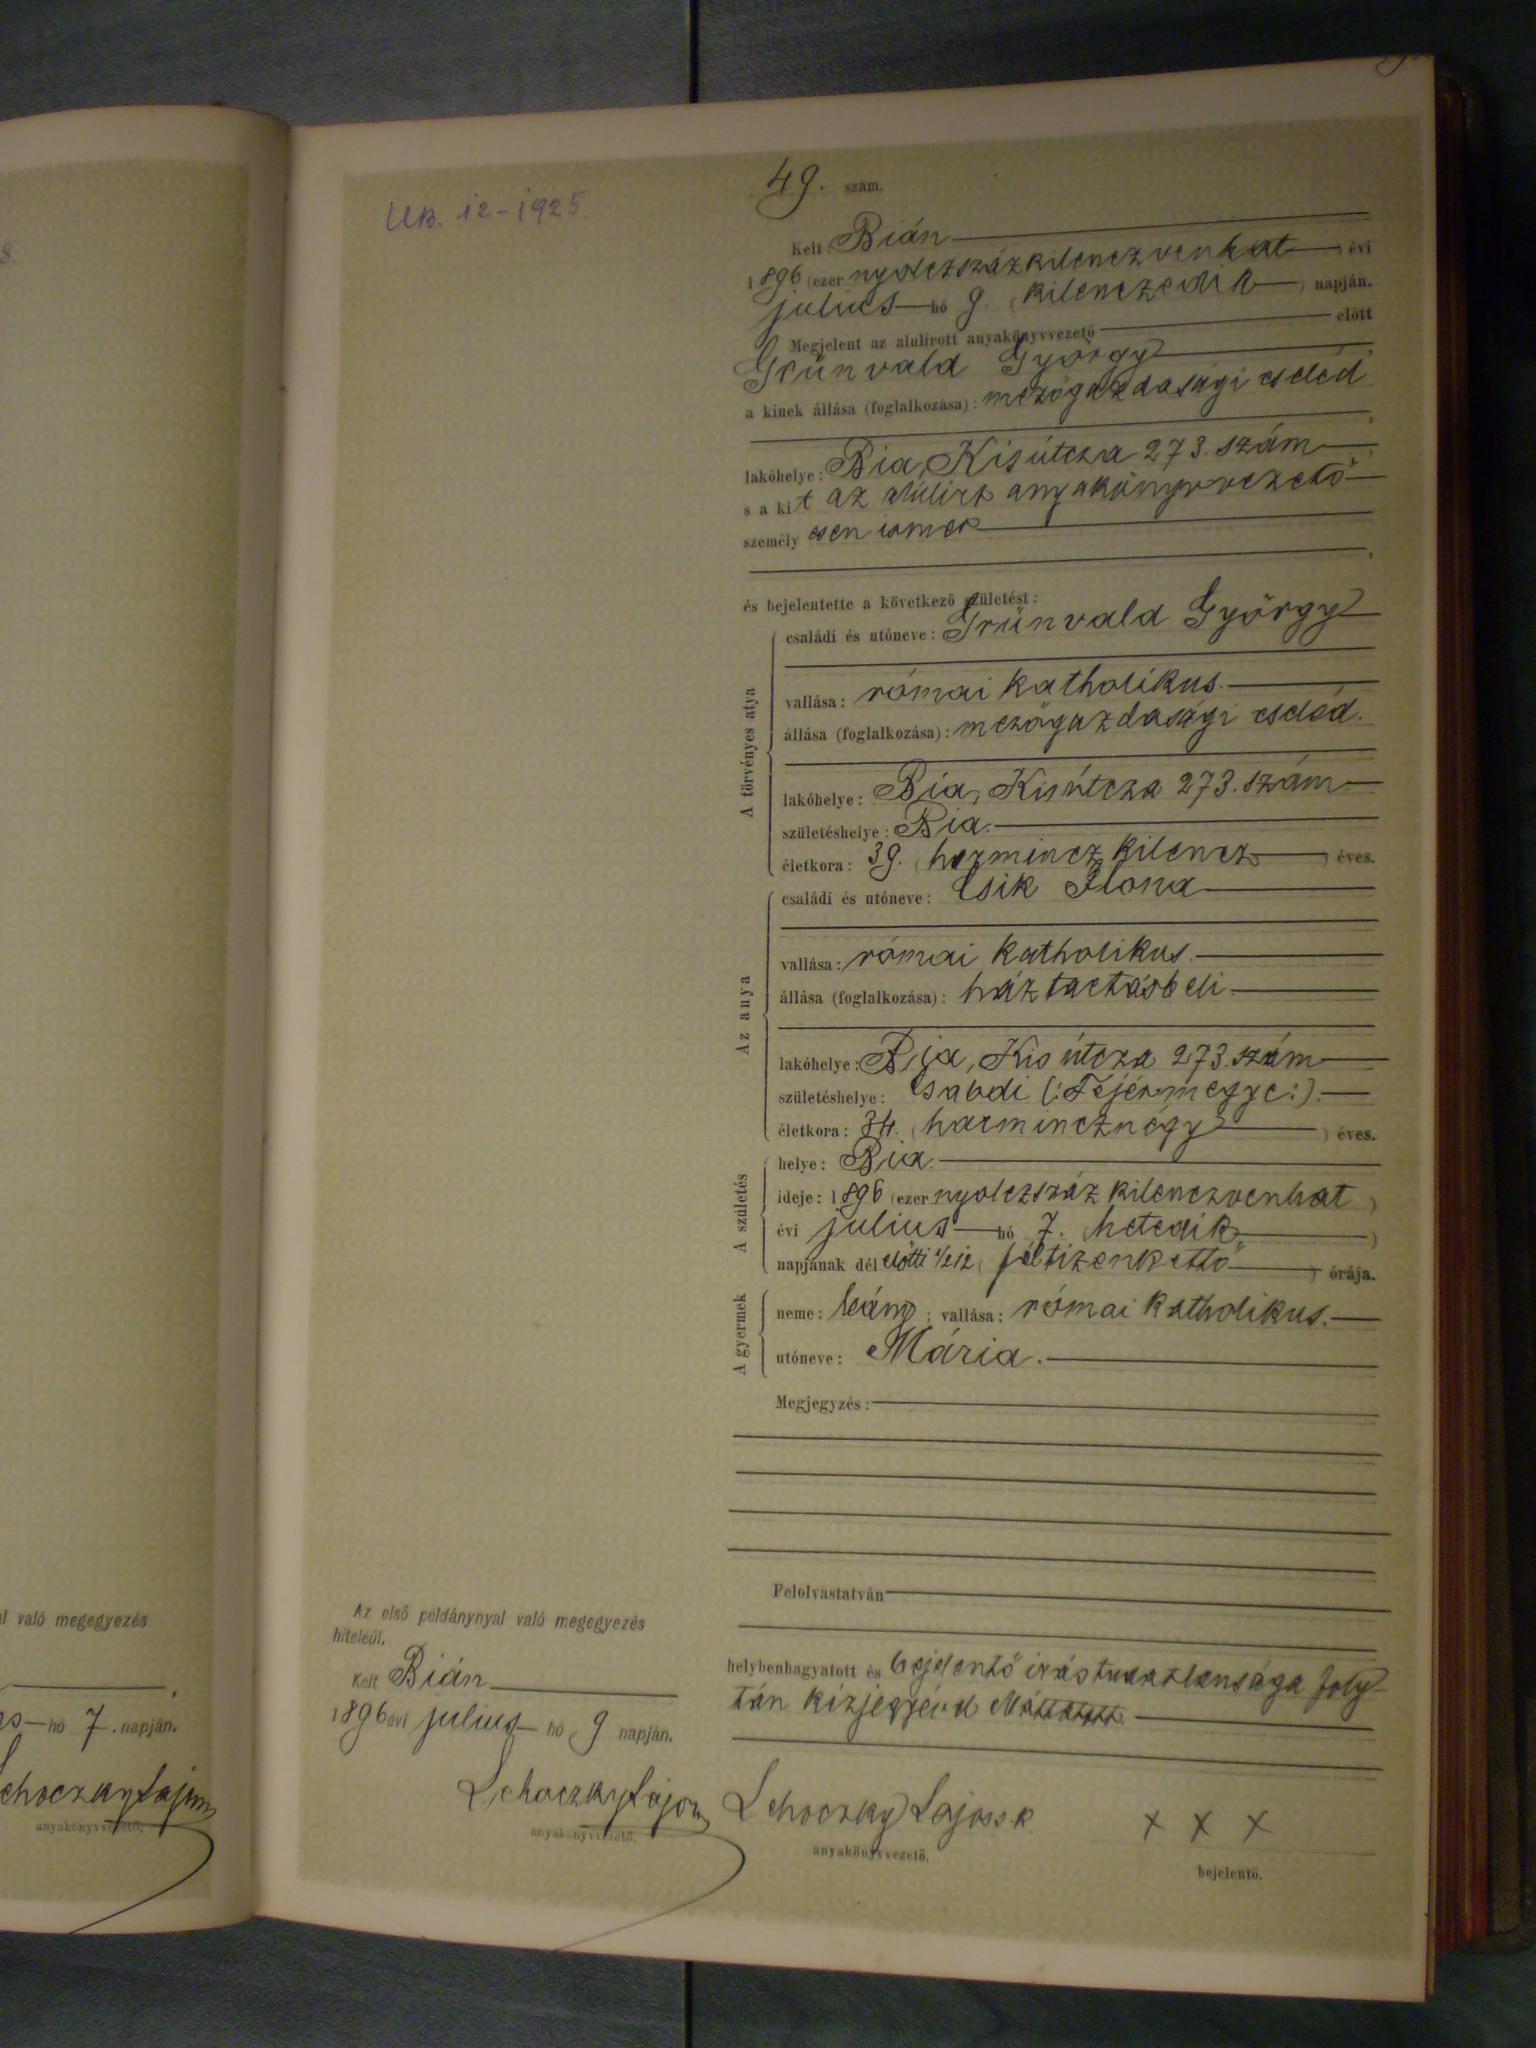 49. szám.
UB. 12-1925.
Kelt: Bián
1896 (ezer nyolczszázkilenczvenhat) évi
julius hó 9. (kilenczedik) napján.
Megjelent az alulirott anyakönyvvezető előtt
Grünvald György,
a kinek állása (foglalkozása): mezőgazdasági cseléd
lakóhelye: Bia, Kisútcza 273. szám,
s a kit az alulirt anyakönyvvezető
személyesen ismer
és bejelentette a következő születést:
A törvényes atya
családi és utóneve: Grünvald György
vallása: római katholikus.
állása (foglalkozása): mezőgazdasági cseléd.
lakóhelye: Bia, Kisútcza 273. szám
születéshelye: Bia.
életkora: 39. (harmincz kilencz) éves.
Az anya
családi és utóneve: Csik Ilona
vallása: római katholikus.
állása (foglalkozása): háztartásbeli.
lakóhelye: Bia, Kis útcza 273. szám
születéshelye: Csabdi (:Fejérmegye:).
életkora: 34. (harmincznégy) éves.
A születés
helye: Bia.
ideje: 1896 (ezer nyolczszáz kilenczvenhat)
évi julius hó 7. (hetedik)
napjának délelőtti 1/2 12 (féltizenkettő) órája.
A gyermek
neme: leány; vallása: római katholikus.
utóneve: Mária.
Megjegyzés:
Felolvastatván
helybenhagyatott és bejelentő irástudatlansága foly-
tán kézjegyével
Lehoczky Lajos s. k.
anyakönyvvezető.
x x x
bejelentő.
Az első példánynyal való megegyezés
hiteléül.
Kelt Bián
1896 évi julius hó 9 napján.
Lehoczky Lajos
anyakönyvvezető.
való megegyezés
hó 7. napján.
Lehoczky Lajos
anyakönyvvezető.